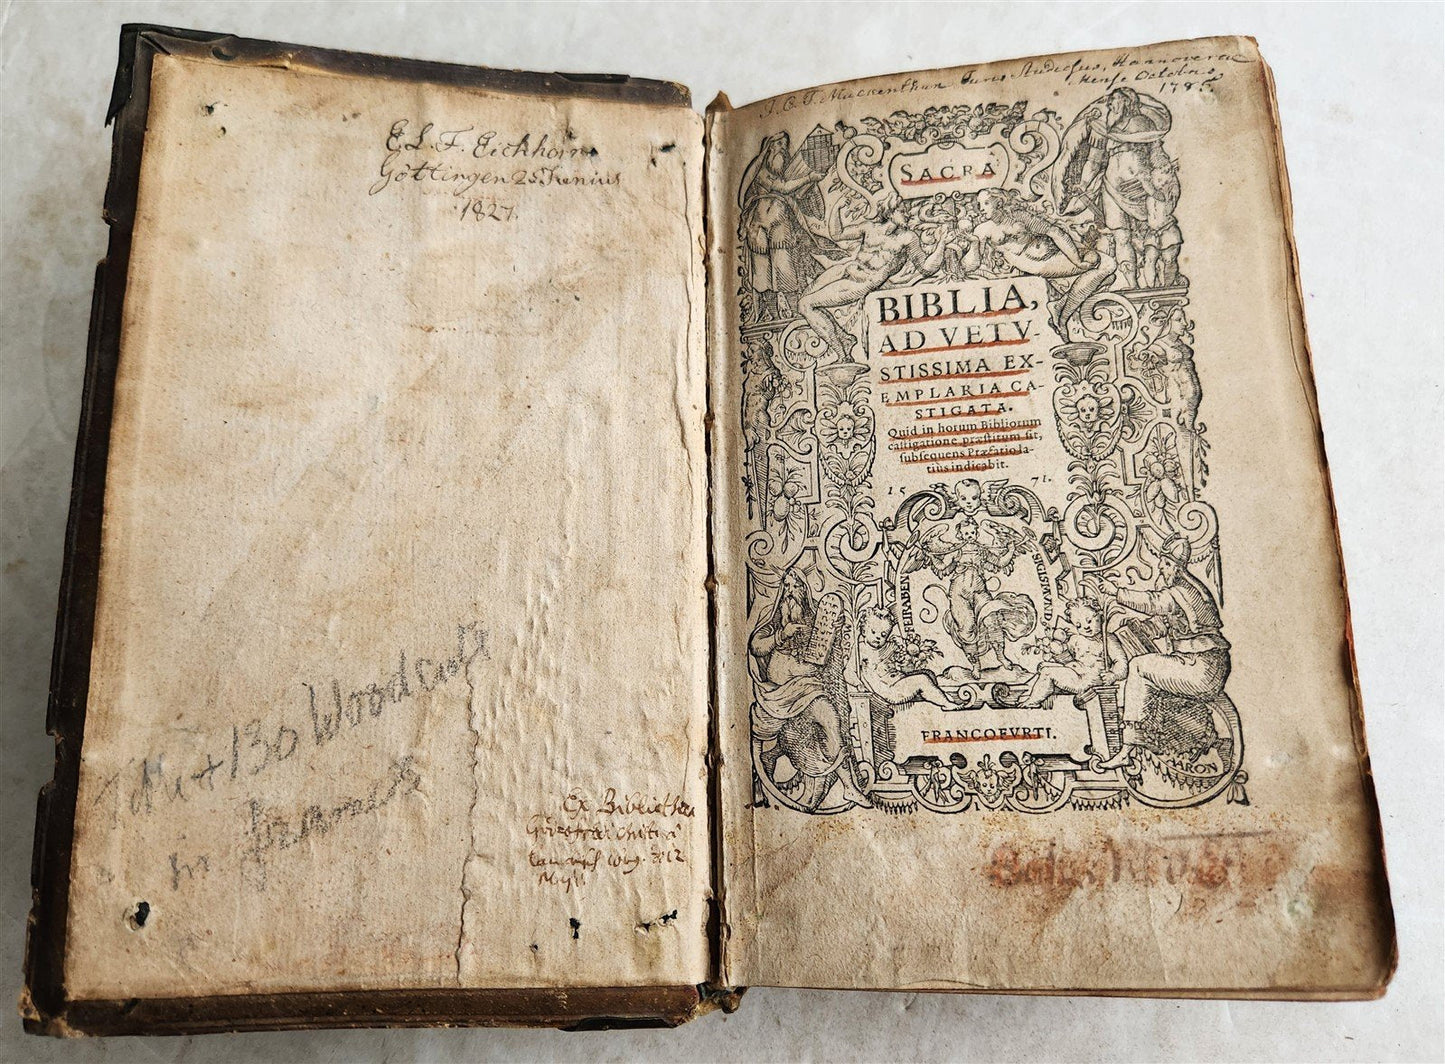 E. L. F. Eickhorn
Göttingen 25 Junius
1827.
M, + 130 Woodcuts
in frames
Ex Bibliotheca
Mense Octobris
1786.
SACRA
BIBLIA,
AD VETV-
STISSIMA EX-
EMPLARIA CA-
STIGATA.
Quid in horum Bibliorum
castigatione præstitum sit,
subsequens Præfatio la-
tius indicabit.
15 71.
FEIRABEN
SIGISMVNDVS
MOS
AARON
FRANCOFVRTI.